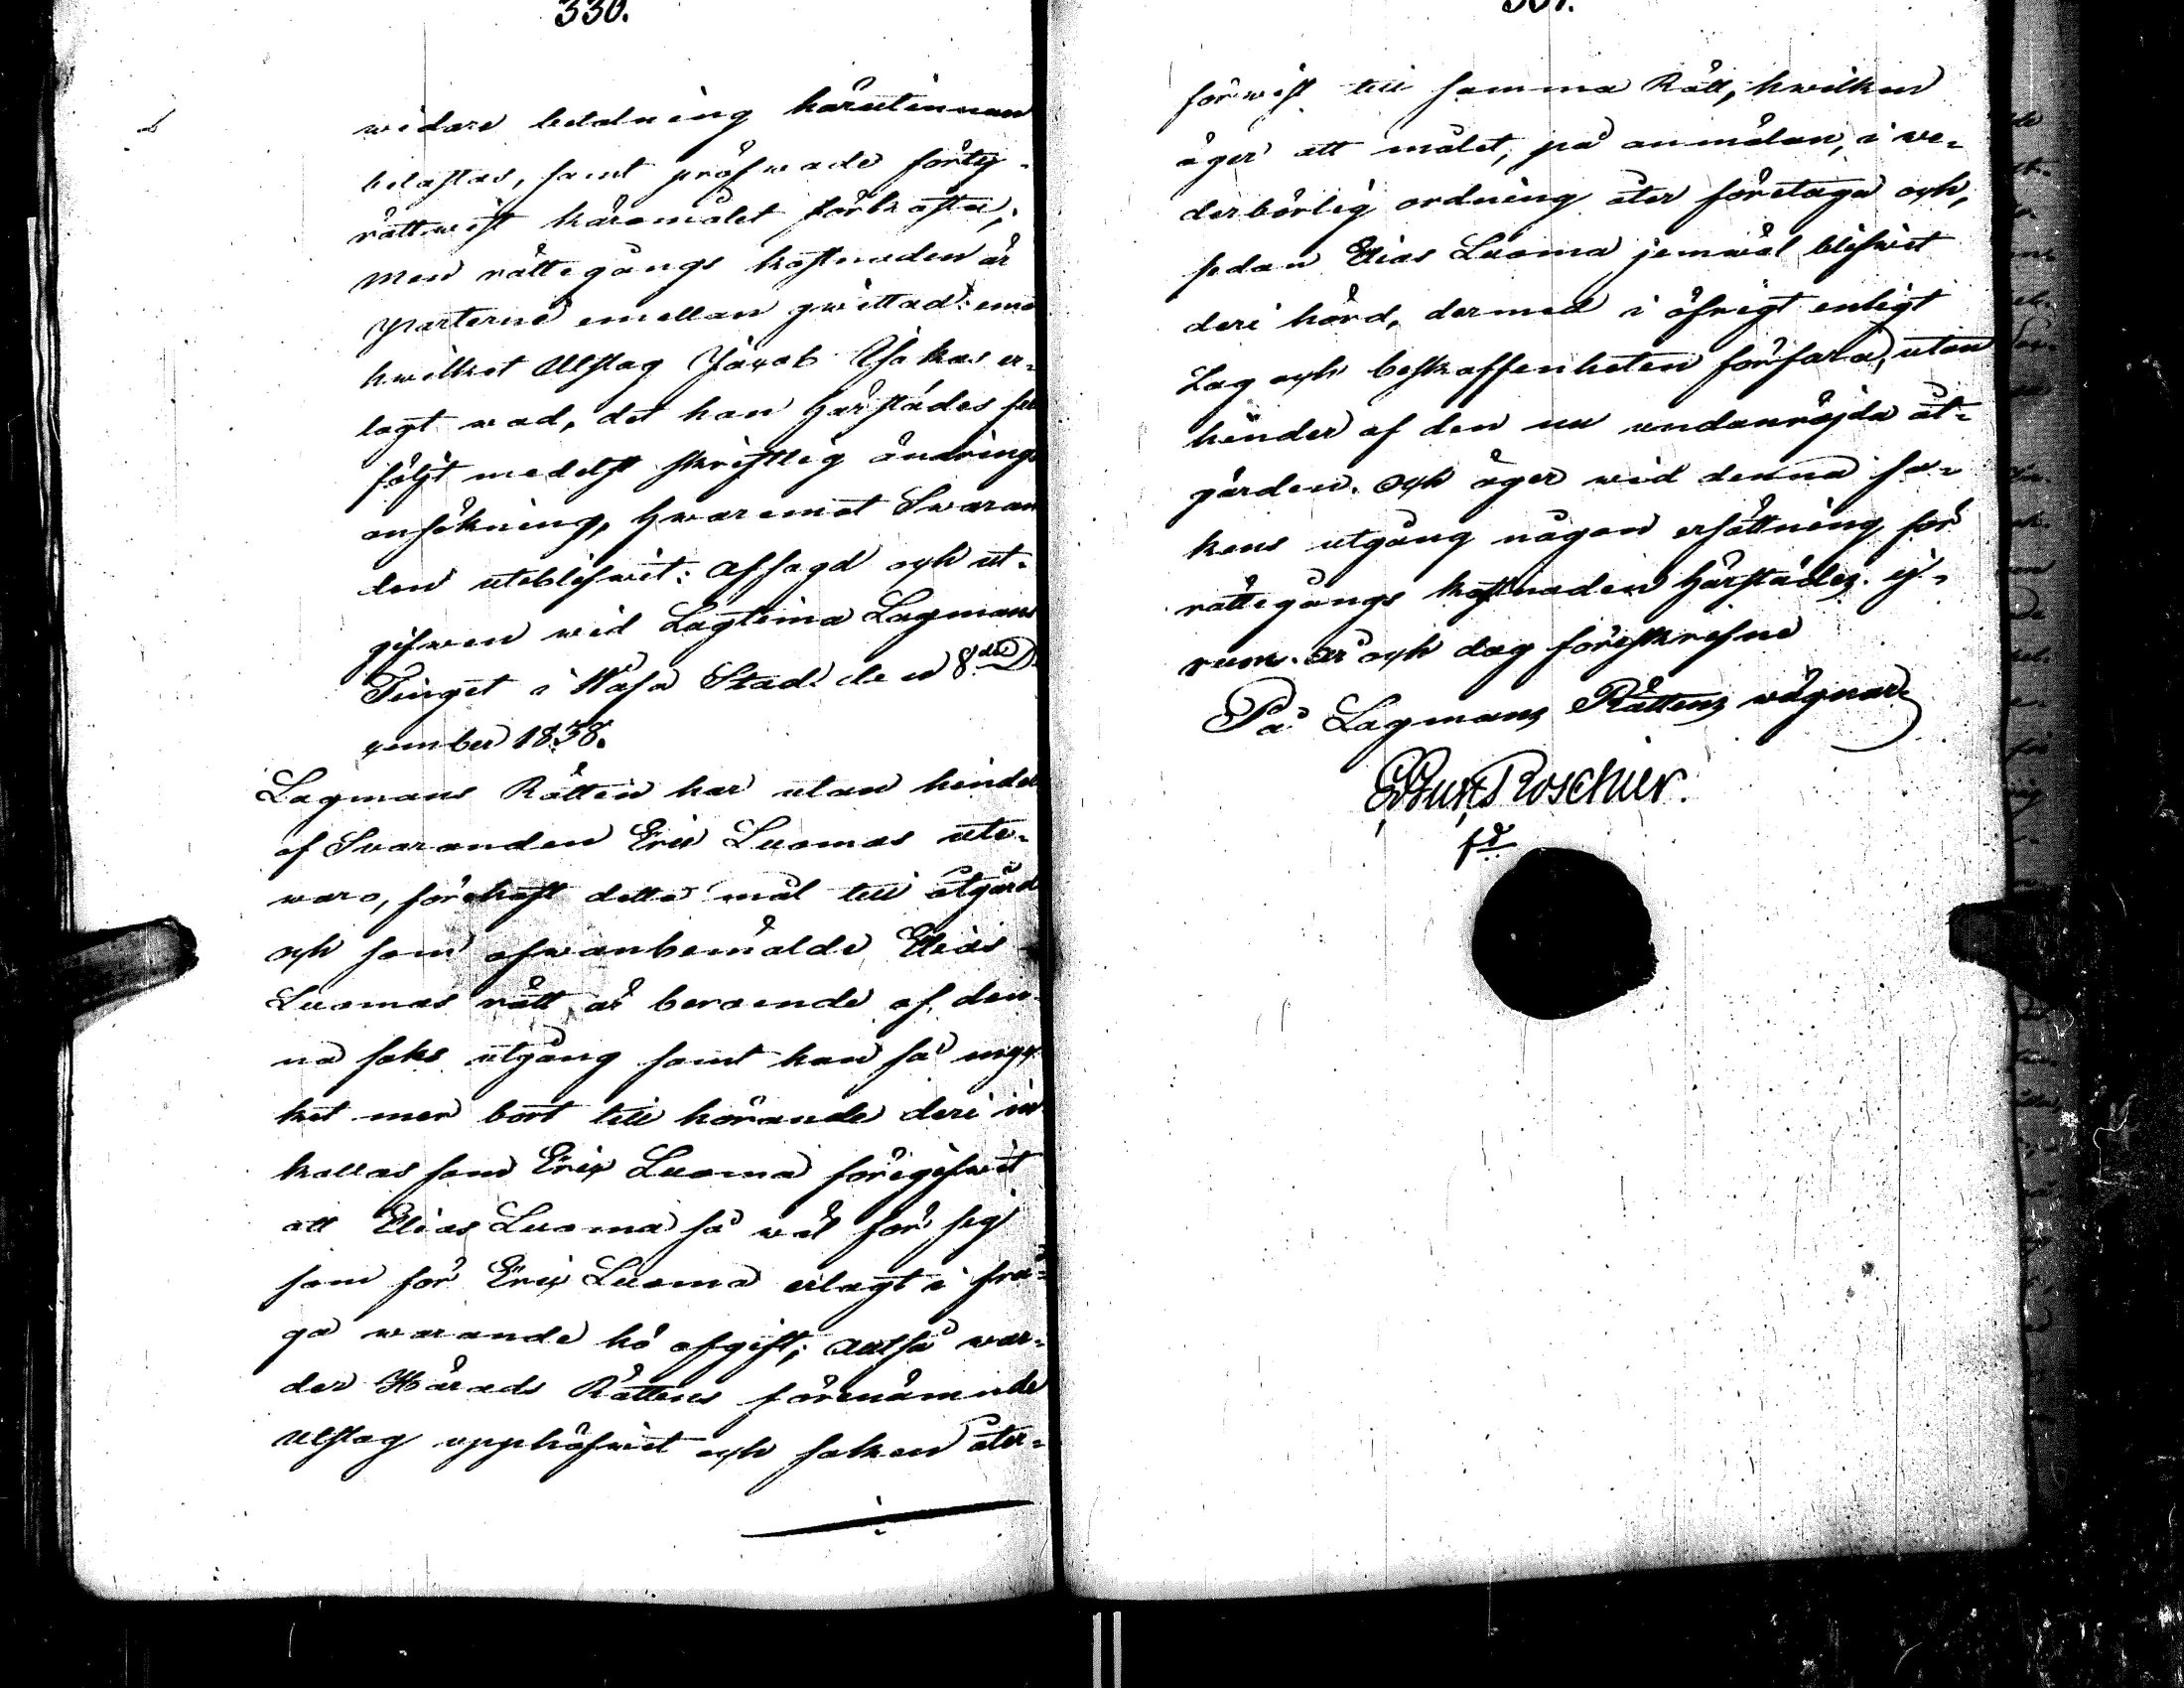 330.
widare betalning härutinnan
belastas, samt pröfwade förty
rättwist käromålet förkasta;
men rättegångs kostnaden är
parterne emellan qwittad: emot
hwilket Utslag Jacob Isakas er-
lagt wad, det han härstädes full
följt medelst skriftlig ändrings
ansökning, hwaremot Swaran
den uteblifwit: afsagd och ut-
gifwen wid Lagtima Lagmans
Tinget i Wasa Stad den 8de De
cember 1838.
Lagmans Rätten har utan hinder
af Swaranden Eric Luomas ute-
waro, förehaft detta mål till åtgärd
och som ofwanbemälde Elias
Luomas rätt är beroende af den-
na saks utgång samt han så myc
ket mer bort till hörande deri in
kallas som Eric Luoma föregifwit
att Elias Luoma så wäl för sig
som för Eric Luoma erlagt i frå-
ga warande hö afgift; altså war-
der Härads Rättens förenämnde
Utslag upphäfwit och saken åter-
331.
förwist till samma Rätt, hwilken
äger att målet, på anmälan, i we-
derbörlig ordning åter företaga och,
sedan Elias Luoma jemwäl blifwit
deri hörd, dermed i öfrigt enligt
Lag och beskaffenheten förfara, utan
hinder af den nu undanröjda åt-
gärden. Och äger wid denna sa-
kens utgång någon ersättning för
rättegångs kostnaden härstädes ej
rum. År och dag förestkrefne
På Lagmans Rättens wägnar
Roschier.